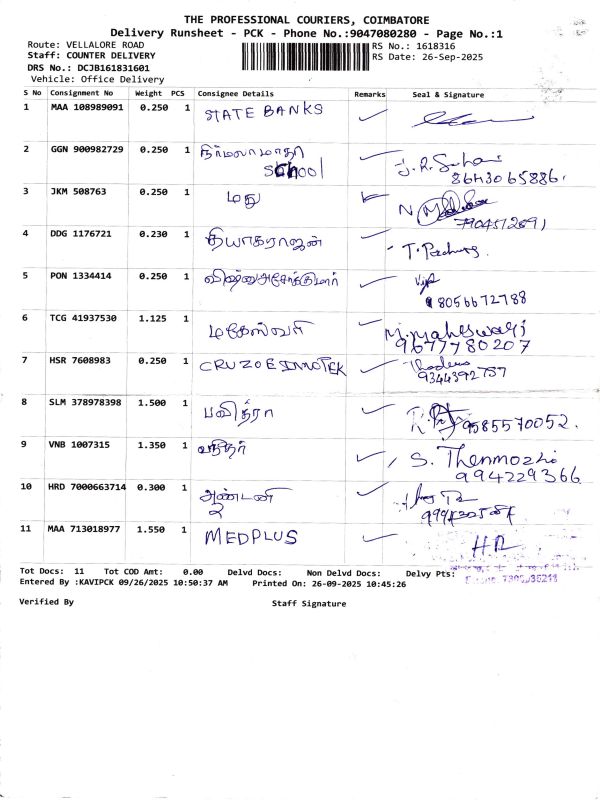 THE PROFESSIONAL COURIERS, COIMBATORE
Delivery Runsheet - PCK - Phone No.:9047080280 - Page No.:1
Route: VELLALORE ROAD RS No.: 1618316
Staff: COUNTER DELIVERY RS Date: 26-Sep-2025
DRS No.: DCJB161831601
Vehicle: Office Delivery
S No Consignment No Weight PCS Consignee Details Remarks Seal & Signature
1 MAA 108989091 0.250 1 STATE BANKS
2 GGN 900982729 0.250 1 நிர்மலாமாதா
school
8643065886.
3 JKM 508763 0.250 1 மது
7904512691
4 DDG 1176721 0.230 1 தியாகராஜன்
5 PON 1334414 0.250 1 விஷ்ணுஅசோக்குமார்
8056672788
6 TCG 41937530 1.125 1 மகேஸ்வரி M. Maheswari
9677780207
7 HSR 7608983 0.250 1 CRUZOE INNOTEK
9344392737
8 SLM 378978398 1.500 1 பவித்ரா 9585570052.
9 VNB 1007315 1.350 1 S. Thenmozhi
994229366
10 HRD 7000663714 0.300 1 அண்டனி
2
11 MAA 713018977 1.550 1 MEDPLUS HR
Tot Docs: 11 Tot COD Amt: 0.00 Delvd Docs: Non Delvd Docs: Delvy Pts:
Entered By :KAVIPCK 09/26/2025 10:50:37 AM Printed On: 26-09-2025 10:45:26
Verified By Staff Signature